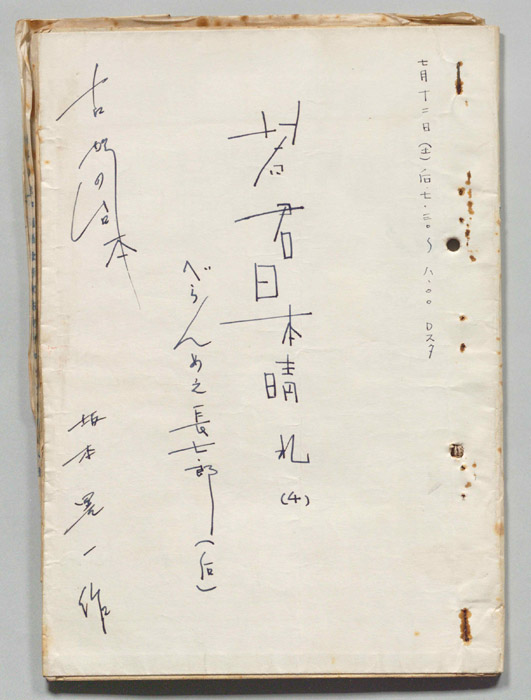 七月十二日(土)后七・三〇〜八・〇〇 Dスタ
若君日本晴れ
(4)
べらんめえ長七郎(后)
古賀の台本
坂本晃一作